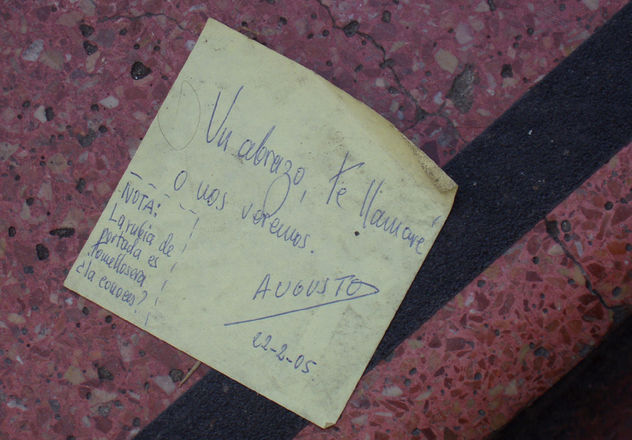 Un abrazo, te llamaré
o nos veremos.
AUGUSTO
22-2-05
NOTA:
La rubia de
portada es
tomellosera
¿la conoces?